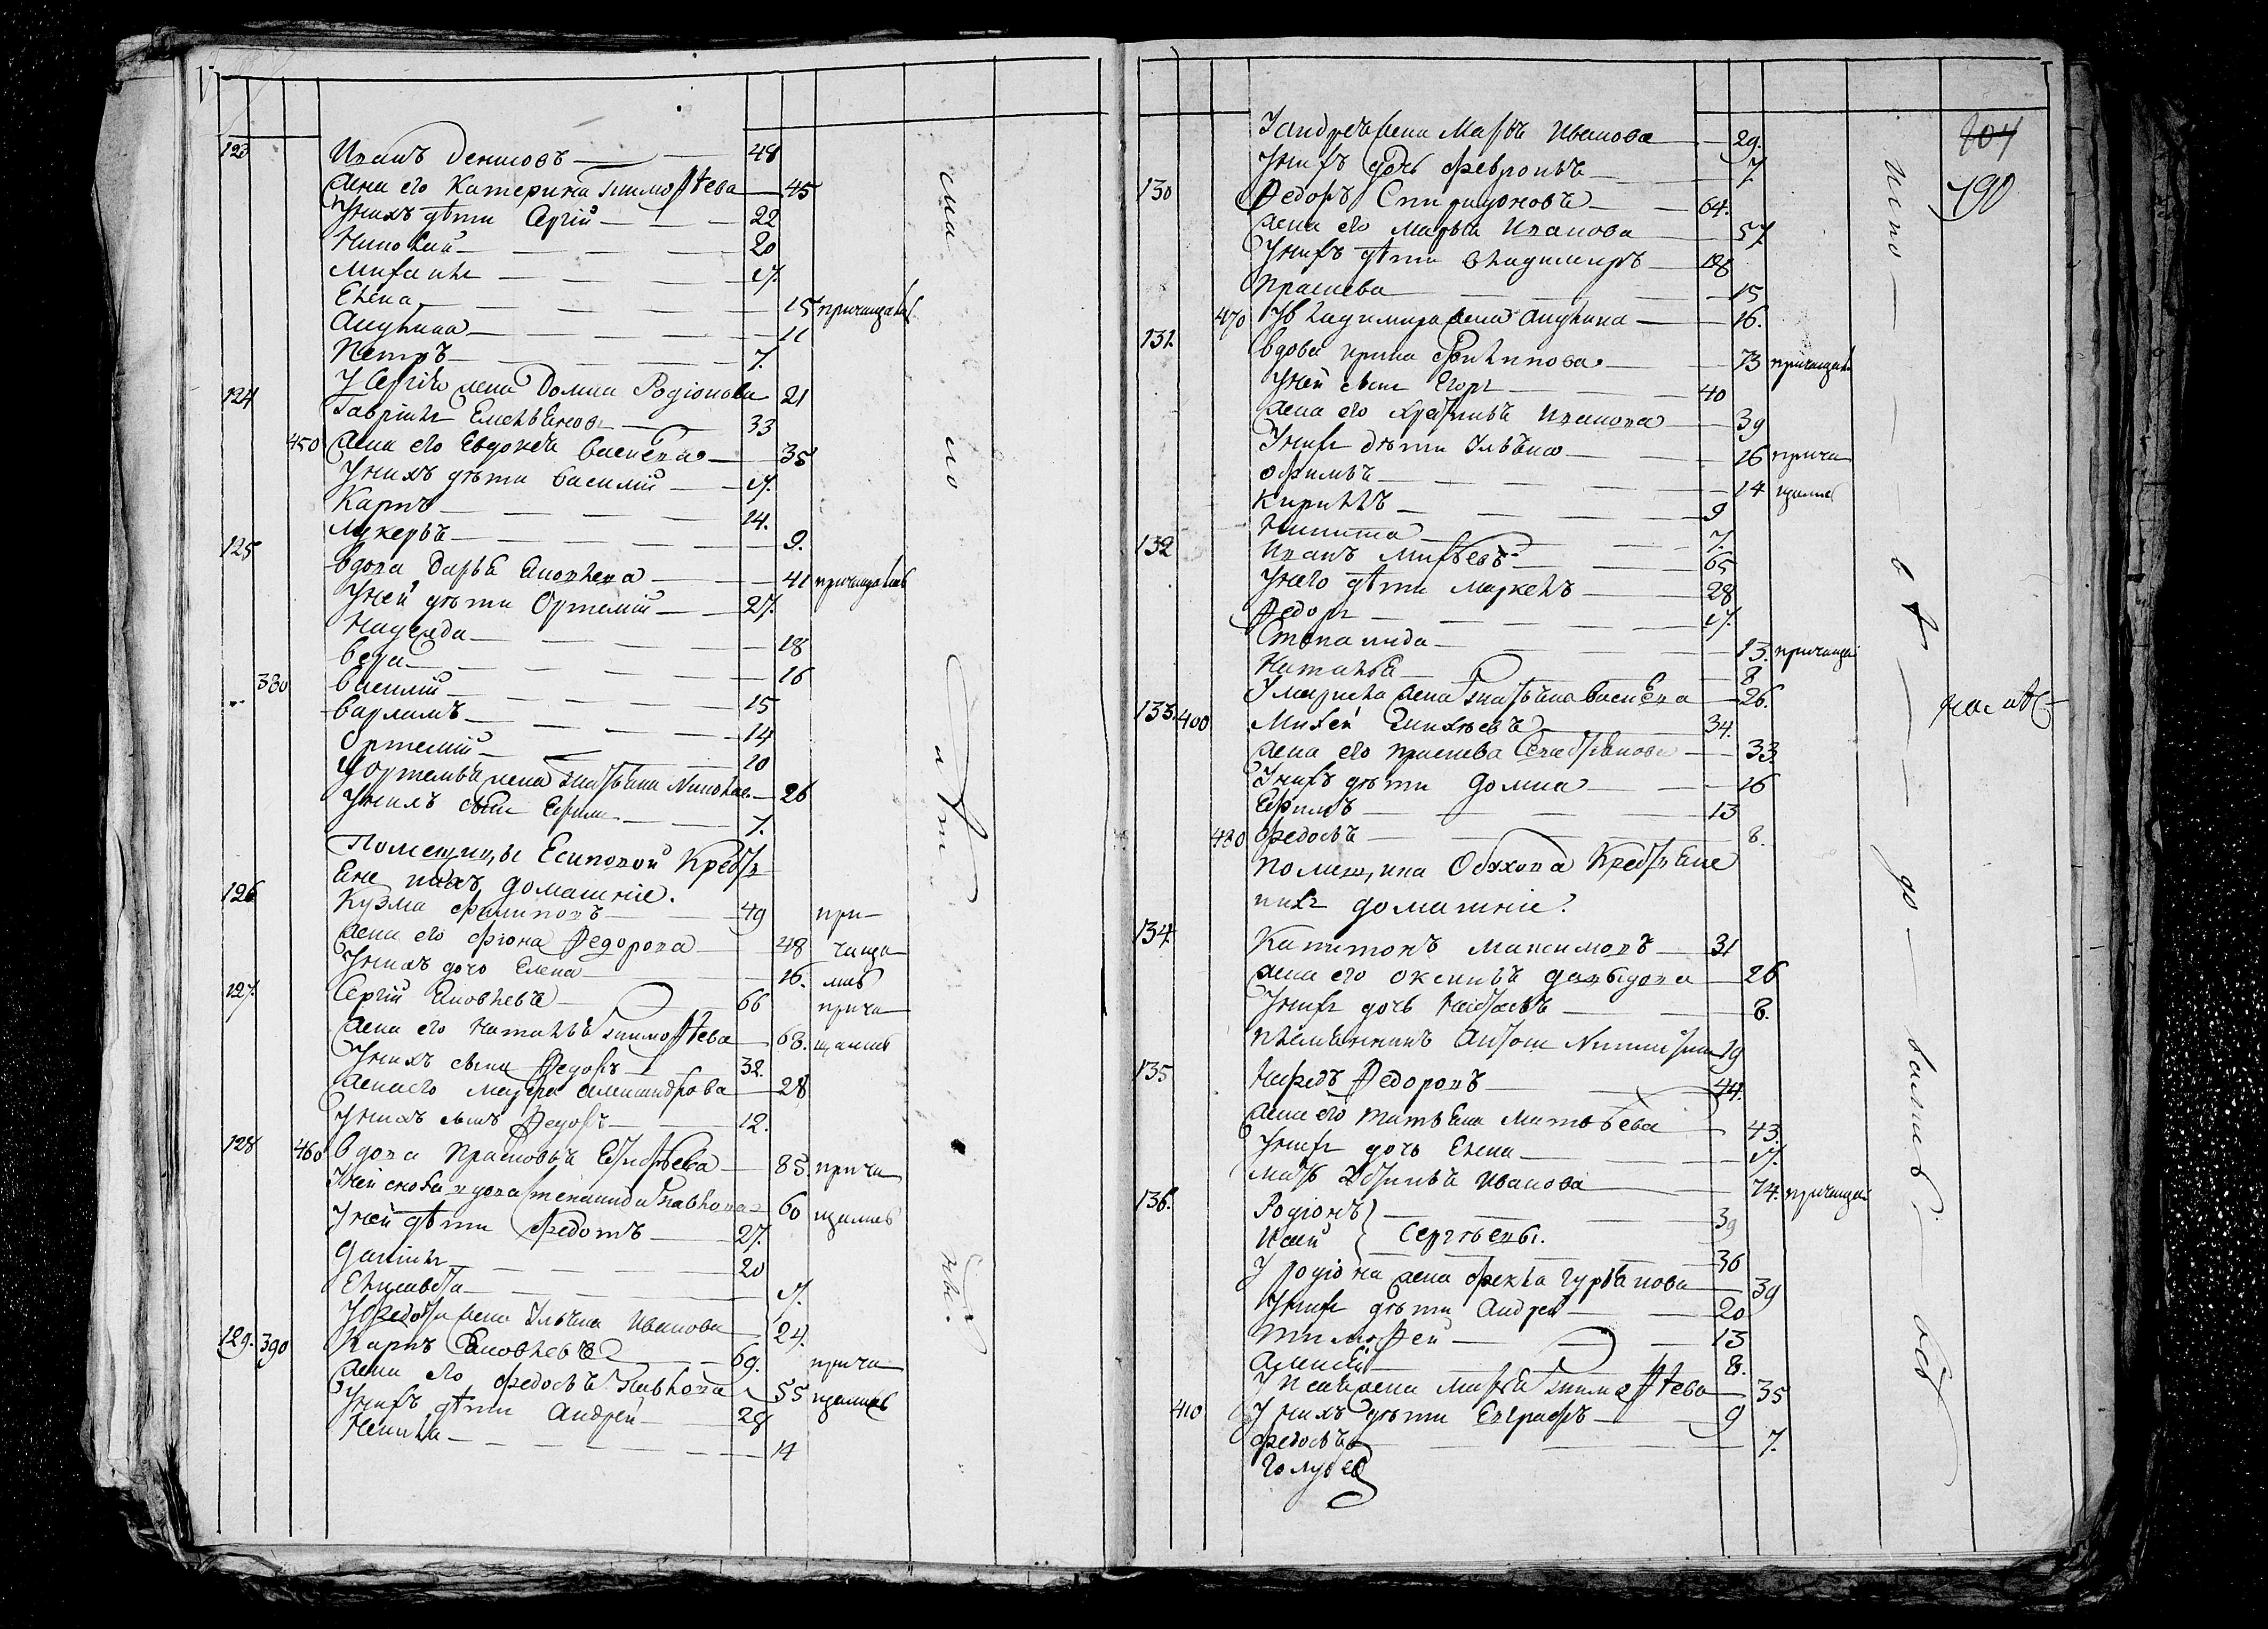 123 Иванъ Денисовъ 48
жена его Катерина Тимофѣева 45
У нихъ дѣти Сергій 22
Николай 20
Михаилъ 17.
Елена 15 причащались
Акулина 11
Петръ 7.
У Сергія жена Домна Родіонова 21
124 Гавріилъ Емельяновъ 33
450 жена его Евдокея Васильева 35
У нихъ дѣти Василій 17.
Карпъ 14.
Лукерья 9.
125 вдова Дарья Яковлева 41 причащались
У ней дѣти Ортемій 27.
Надежда 18
Вера 16
380 Василій 15
Варламъ 14
Ортемій 10
У Ортемья жена Татьяна Николае 26
У нихъ сынъ Ефимъ 7.
Помещицы Есиповой Кресть
яне ихъ домашніе.
126 Кузма Филиповъ 49 при
жена его Федора 48 чаща
У нихъ дочь Елена 16. лись
127. Сергій Яковлевъ 66 прича
жена его Наталья Тимофѣева 68. щались
У нихъ сынъ Федоръ 32.
жена его Мавра Александрова 28
У нихъ сынъ Федоръ 12.
128 460 Вдова Прасковья 85. прича
У ней сноха вдова Степанида Павлова 60 щались
У ней дѣти Федотъ 27.
Данилъ 20
Елисавета 17.
У Федота жена Ульяна Иванова 24.
129. 390 Карпъ Яковлевъ 69. прича
жена его Федосья Павлова 55 щались
У нихъ дѣти Андрей 28
Ненила 14
У Андрея жена Марья Иванова 29.
У нихъ дочь Февронья 7.
130 Федоръ Спиридоновъ 64.
жена его Марья Иванова 57.
У нихъ дѣти Владимиръ 18
Праскева 15
470 У Владимира жена Акулина 16.
131. вдова Ирина Филипова 73 причащали
У ней сынъ Егоръ 40
жена его Иванова 39
У нихъ дѣти Ульяна 16 прича
Офимья 14 щались
Кирилъ 9
Никита 7.
132 Иванъ 65
У него дѣти Маркелъ 28
Федоръ 17.
Степанида 13. причащал
Наталья 8
У Маркела жена Татьяна Васильева 26.
133. 400 Михей 34.
жена его Праскева 33.
У нихъ дѣти Домна 16
Ефимъ 13
480 Федосья 8.
Помещика Обухова Крестьяне
ихъ домашніе.
134. Капитонъ Максимовъ 31
жена его Оксинья Давыдова 26
У нихъ дочь Настасья 8.
племянникъ Антонъ Никитинъ 19
135 Нефедъ Федоровъ 44.
жена его Татьяна Матвѣева 43.
У нихъ дочь Елена 17.
мать Устинья Иванова 74. причащал
136. Родіонъ 39
Исай Сергѣевы. 36
У Родіона жена Фекла Гурьянова 39
У нихъ дѣти Андрей 20
Тимофей 13
Алексѣй 8.
У Исая жена Марья Тимофѣева 35
410 У нихъ дѣти Евграфъ 9
Федосья 7.
104
190